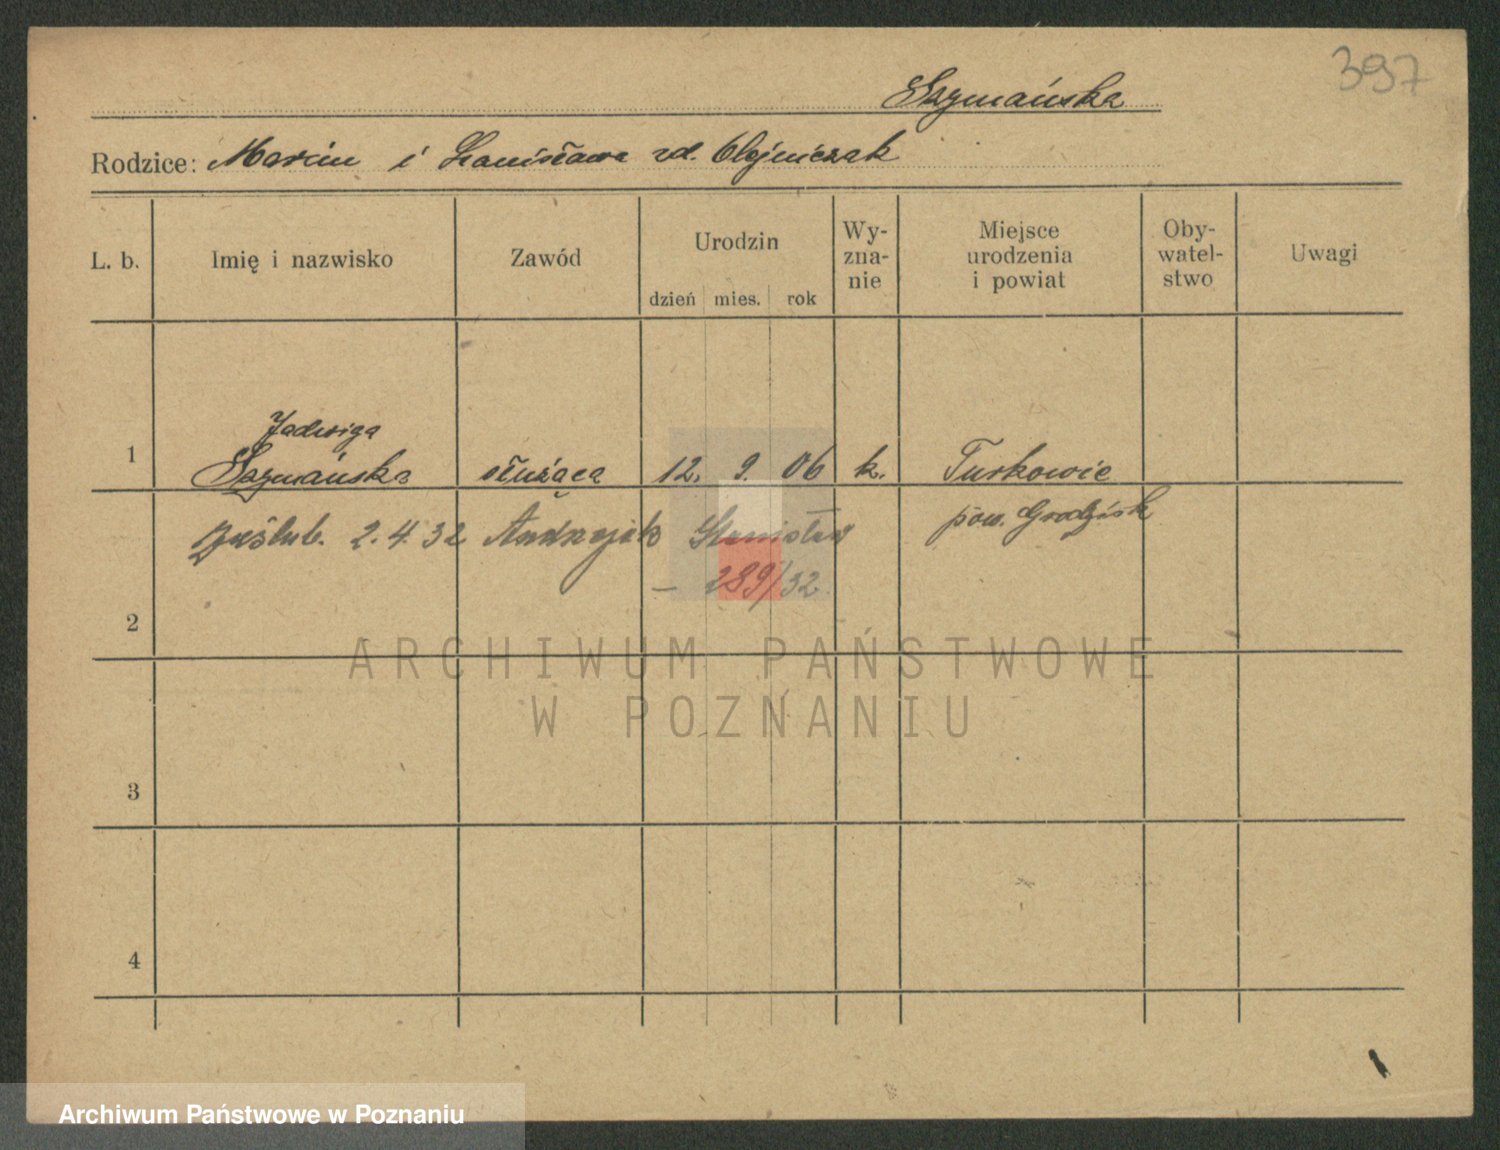 397
Szymańska
Rodzice: Marcin i Stanisława zd. Olejniczak
L. b.
Imię i nazwisko
Zawód
Urodzin
dzień mies. rok
Wy-
zna-
nie
Miejsce
urodzenia
i powiat
Oby-
watel-
stwo
Uwagi
1
Jadwiga
Szymańska służąca 12. 9. 06 k. Turkowie
pow. Grodzisk
zaślub. 2.4.32 Andrzejak Stanisław
– 289/32
2
3
4
ARCHIWUM PAŃSTWOWE
W POZNANIU
Archiwum Państwowe w Poznaniu